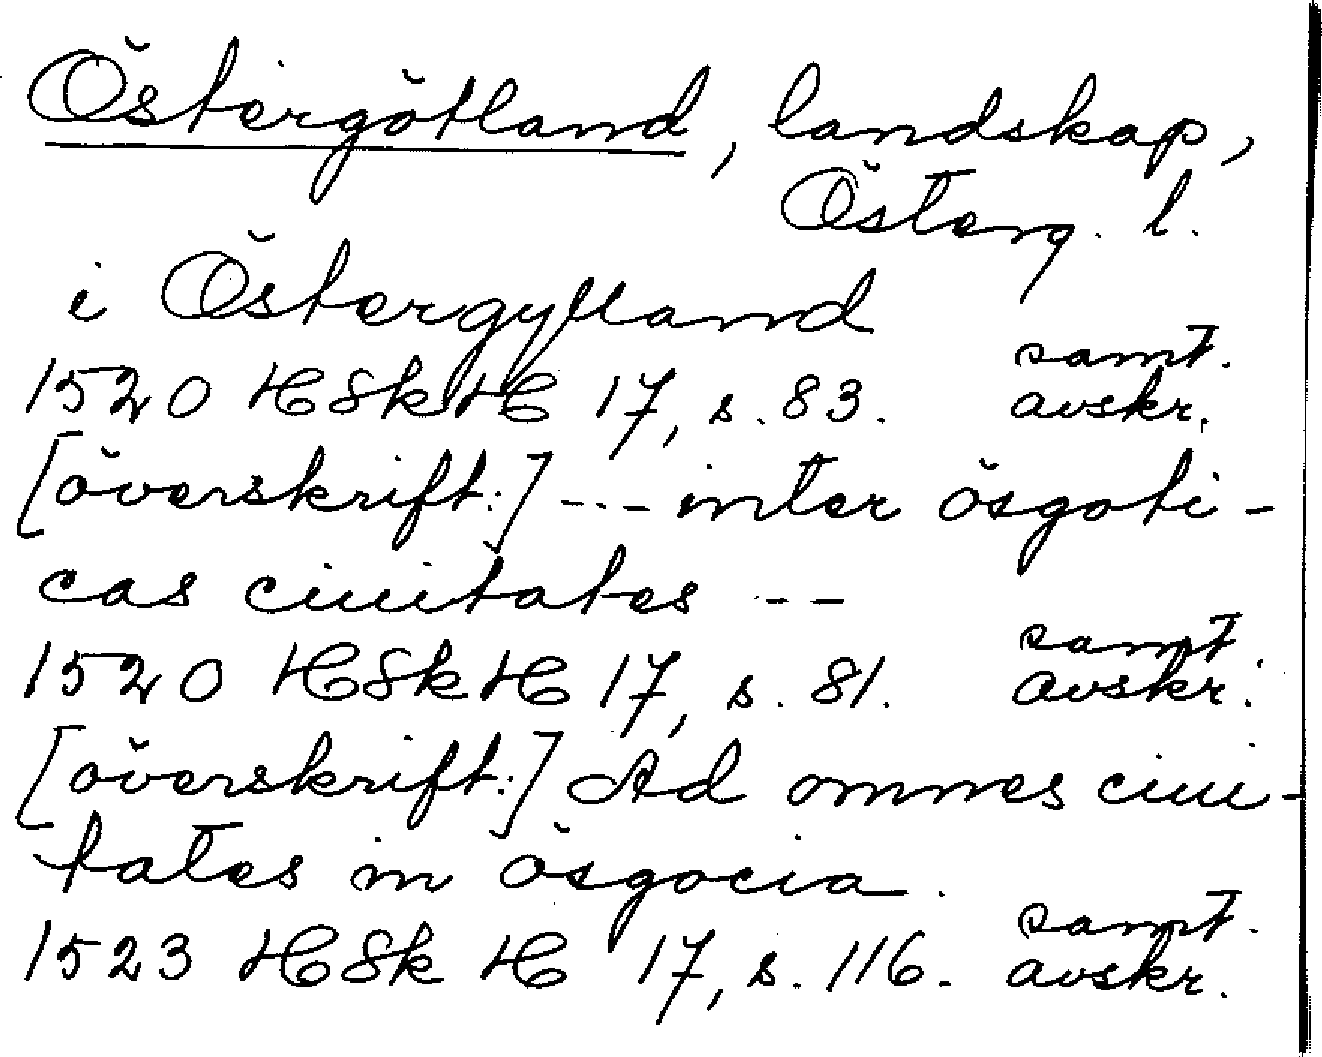 Östergötland, landskap,
Österg. l.
i Östergylland
samt.
1520 HSkH 17, s. 83. avskr.
[överskrift:] --- inter ösgoti-
cas ciuitates --
samt.
1520 HSkH 17, s. 81. avskr.
[överskrift:] Ad omnes ciui-
tates in ösgocia.
samt.
1523 HSkH 17, s. 116. avskr.